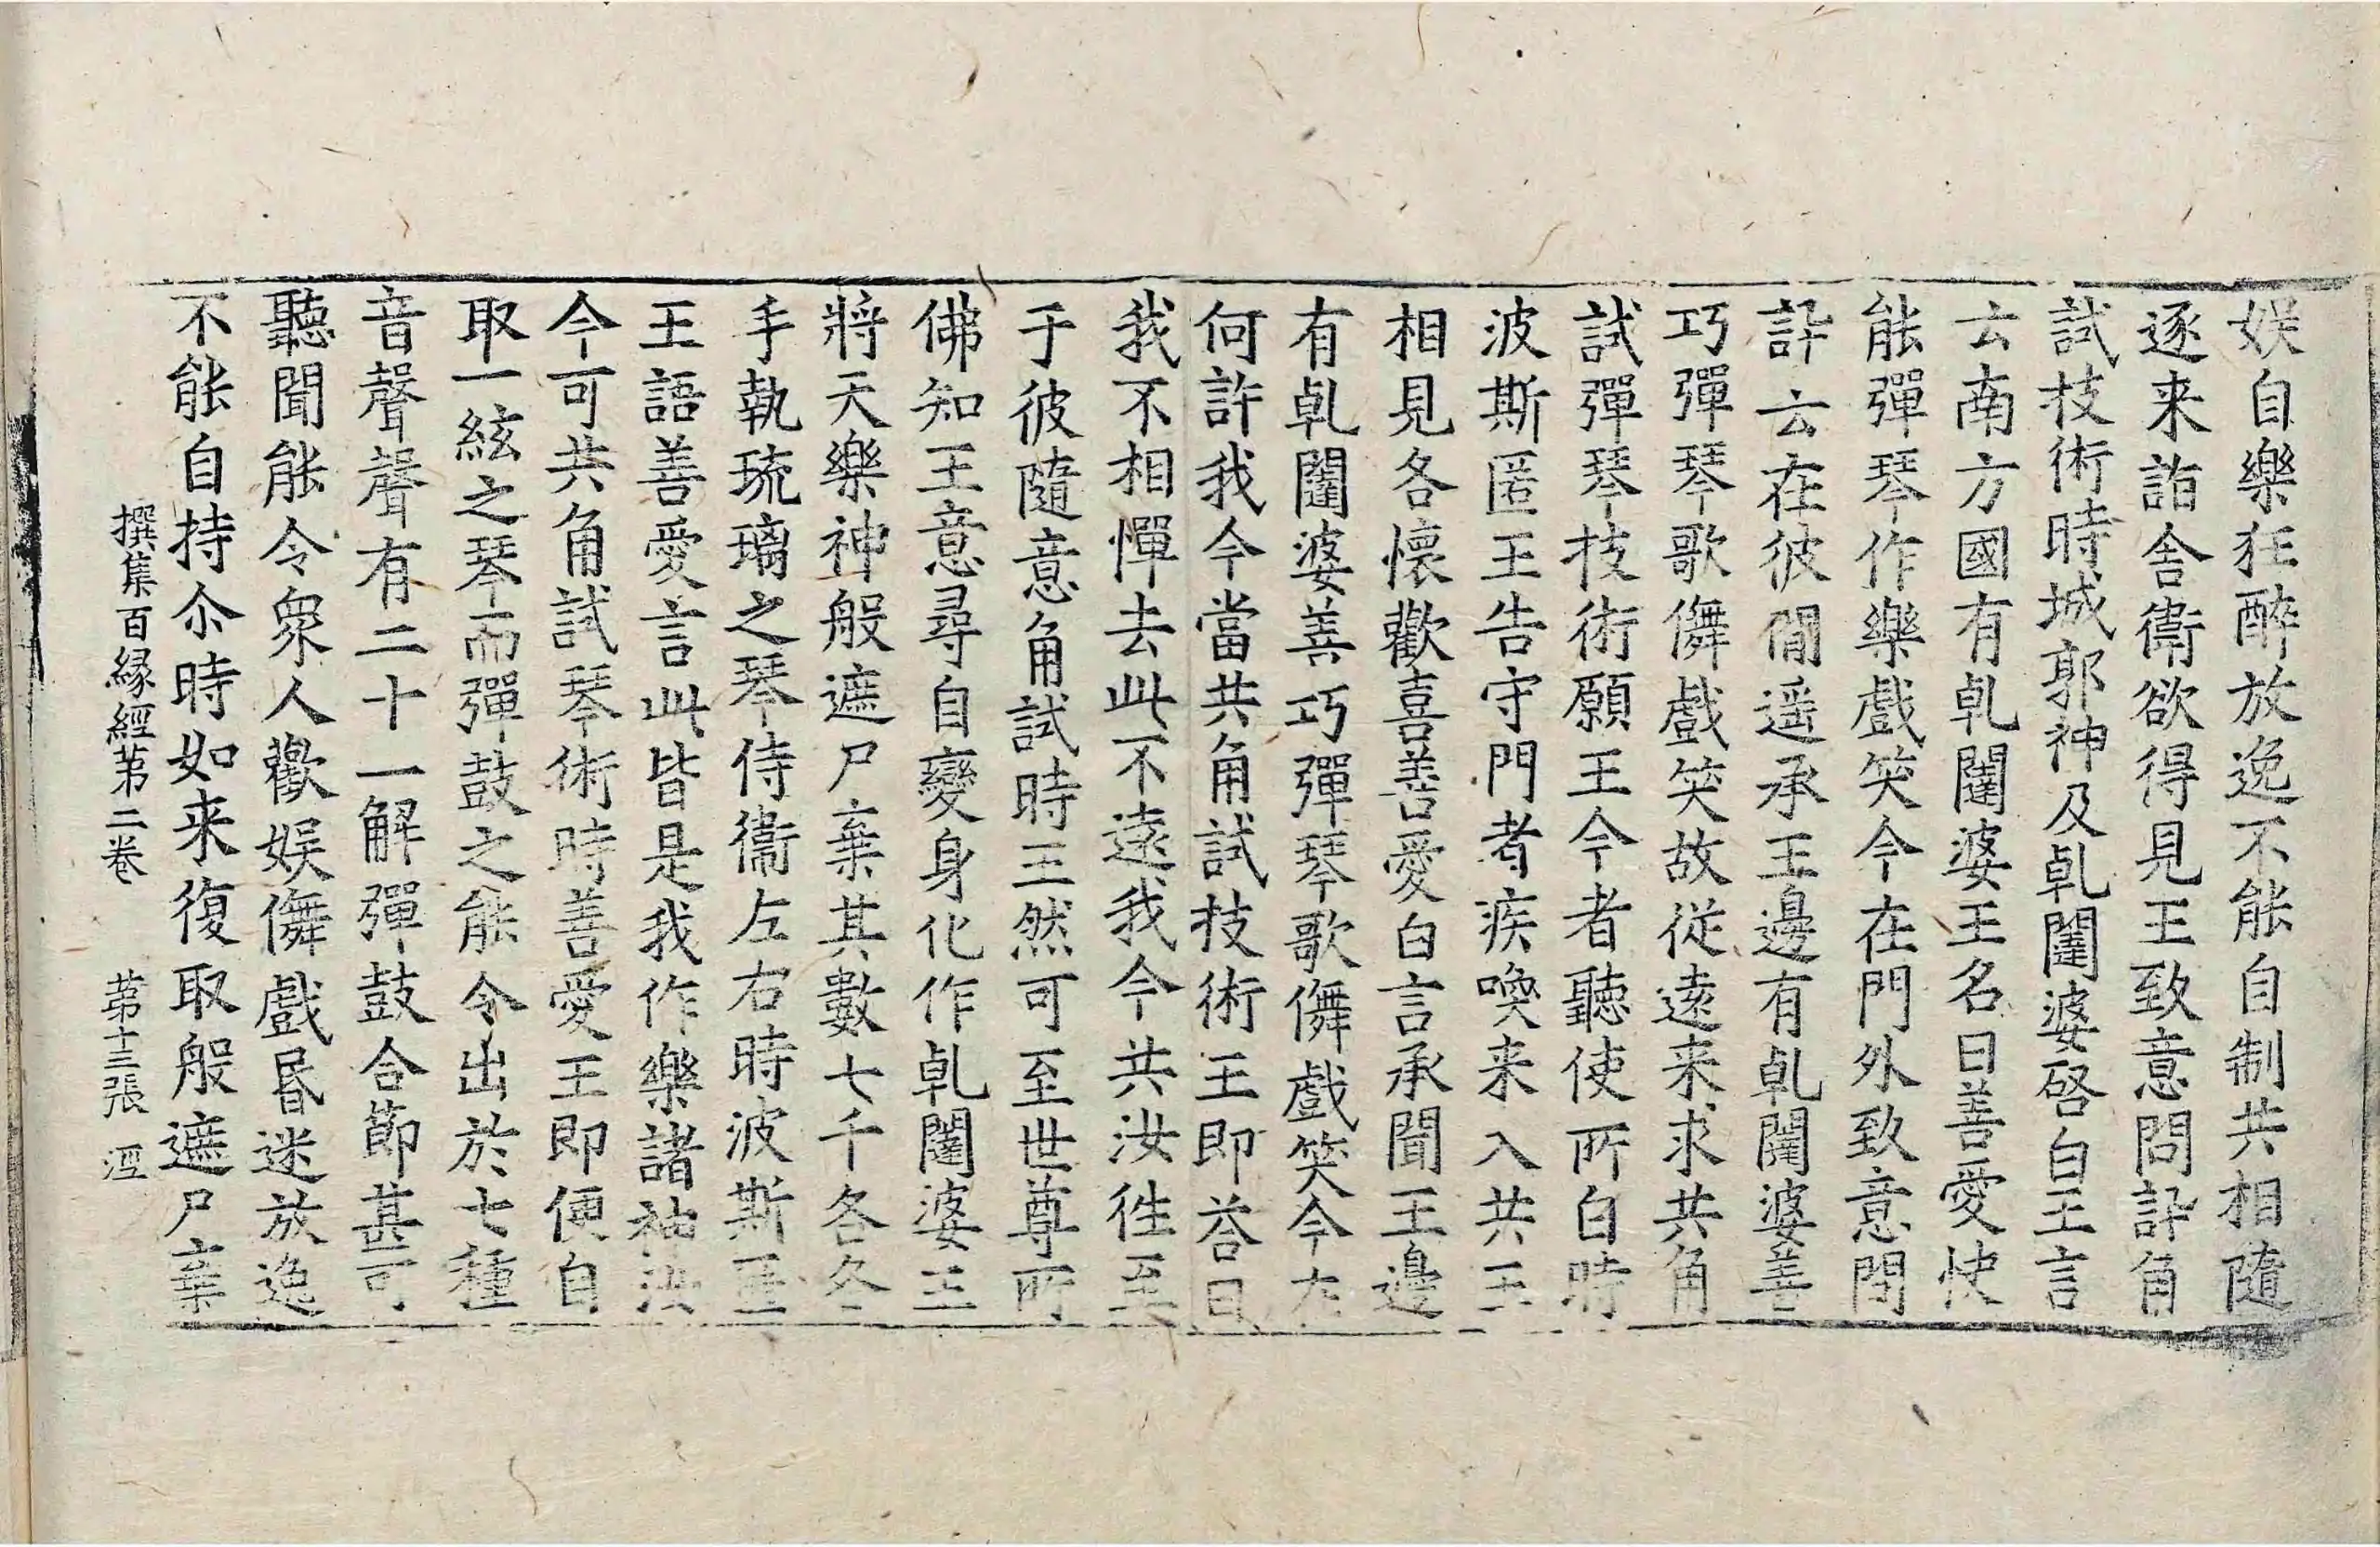 娛自樂狂醉放逸不能自制共相隨
逐来詣舍衛欲得見王致意問訃角
試技術時城郭神及乹闥婆啓白王言
云南方國有乹闥婆王名曰善愛快
能彈琴作樂戲笑今在門外致意問
訃云在彼間遥承王邊有乹闥婆善
巧彈琴歌儛戲笑故従遠来求共角
試彈琴技術願王今者聽使所白時
波斯匿王告守門者疾喚来入共王
相見各懷歡喜善愛白言承聞王邊
有乹闥婆善巧彈琴歌儛戲笑今在
何許我今當共角試技術王即荅曰
我不相憚去此不遠我今共汝徃至
于彼隨意角試時王然可至世尊所
佛知王意尋自變身化作乹闥婆王
將天樂神般遮尸棄其數七千各各
手執琉璃之琴侍衞左右時波斯匿
王語善愛言此皆是我作樂諸神汝
今可共角試琴術時善愛王即便自
取一絃之琴而彈鼓之能令出於七種
音聲聲有二十一解彈鼓合節甚可
聽聞能令衆人歡娛儛戲昬迷放逸
不能自持尒時如来復取般遮尸棄
撰集百緣經第二卷 第十三張 𣴠